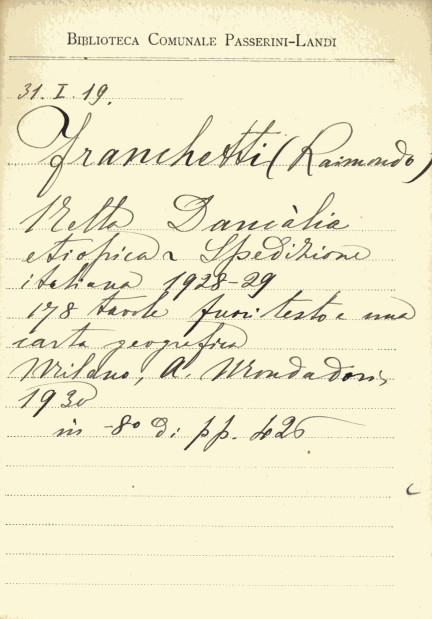 BIBLIOTECA COMUNALE PASSERINI-LANDI
31. I. 19.
Franchetti (Raimondo)
Nella Dancàlia
etiopica ~ Spedizione
italiana 1928-29
178 tavole fuori testo e una
carta geografica
Milano, A. Mondadori,
1930
in -8° di pp. 426